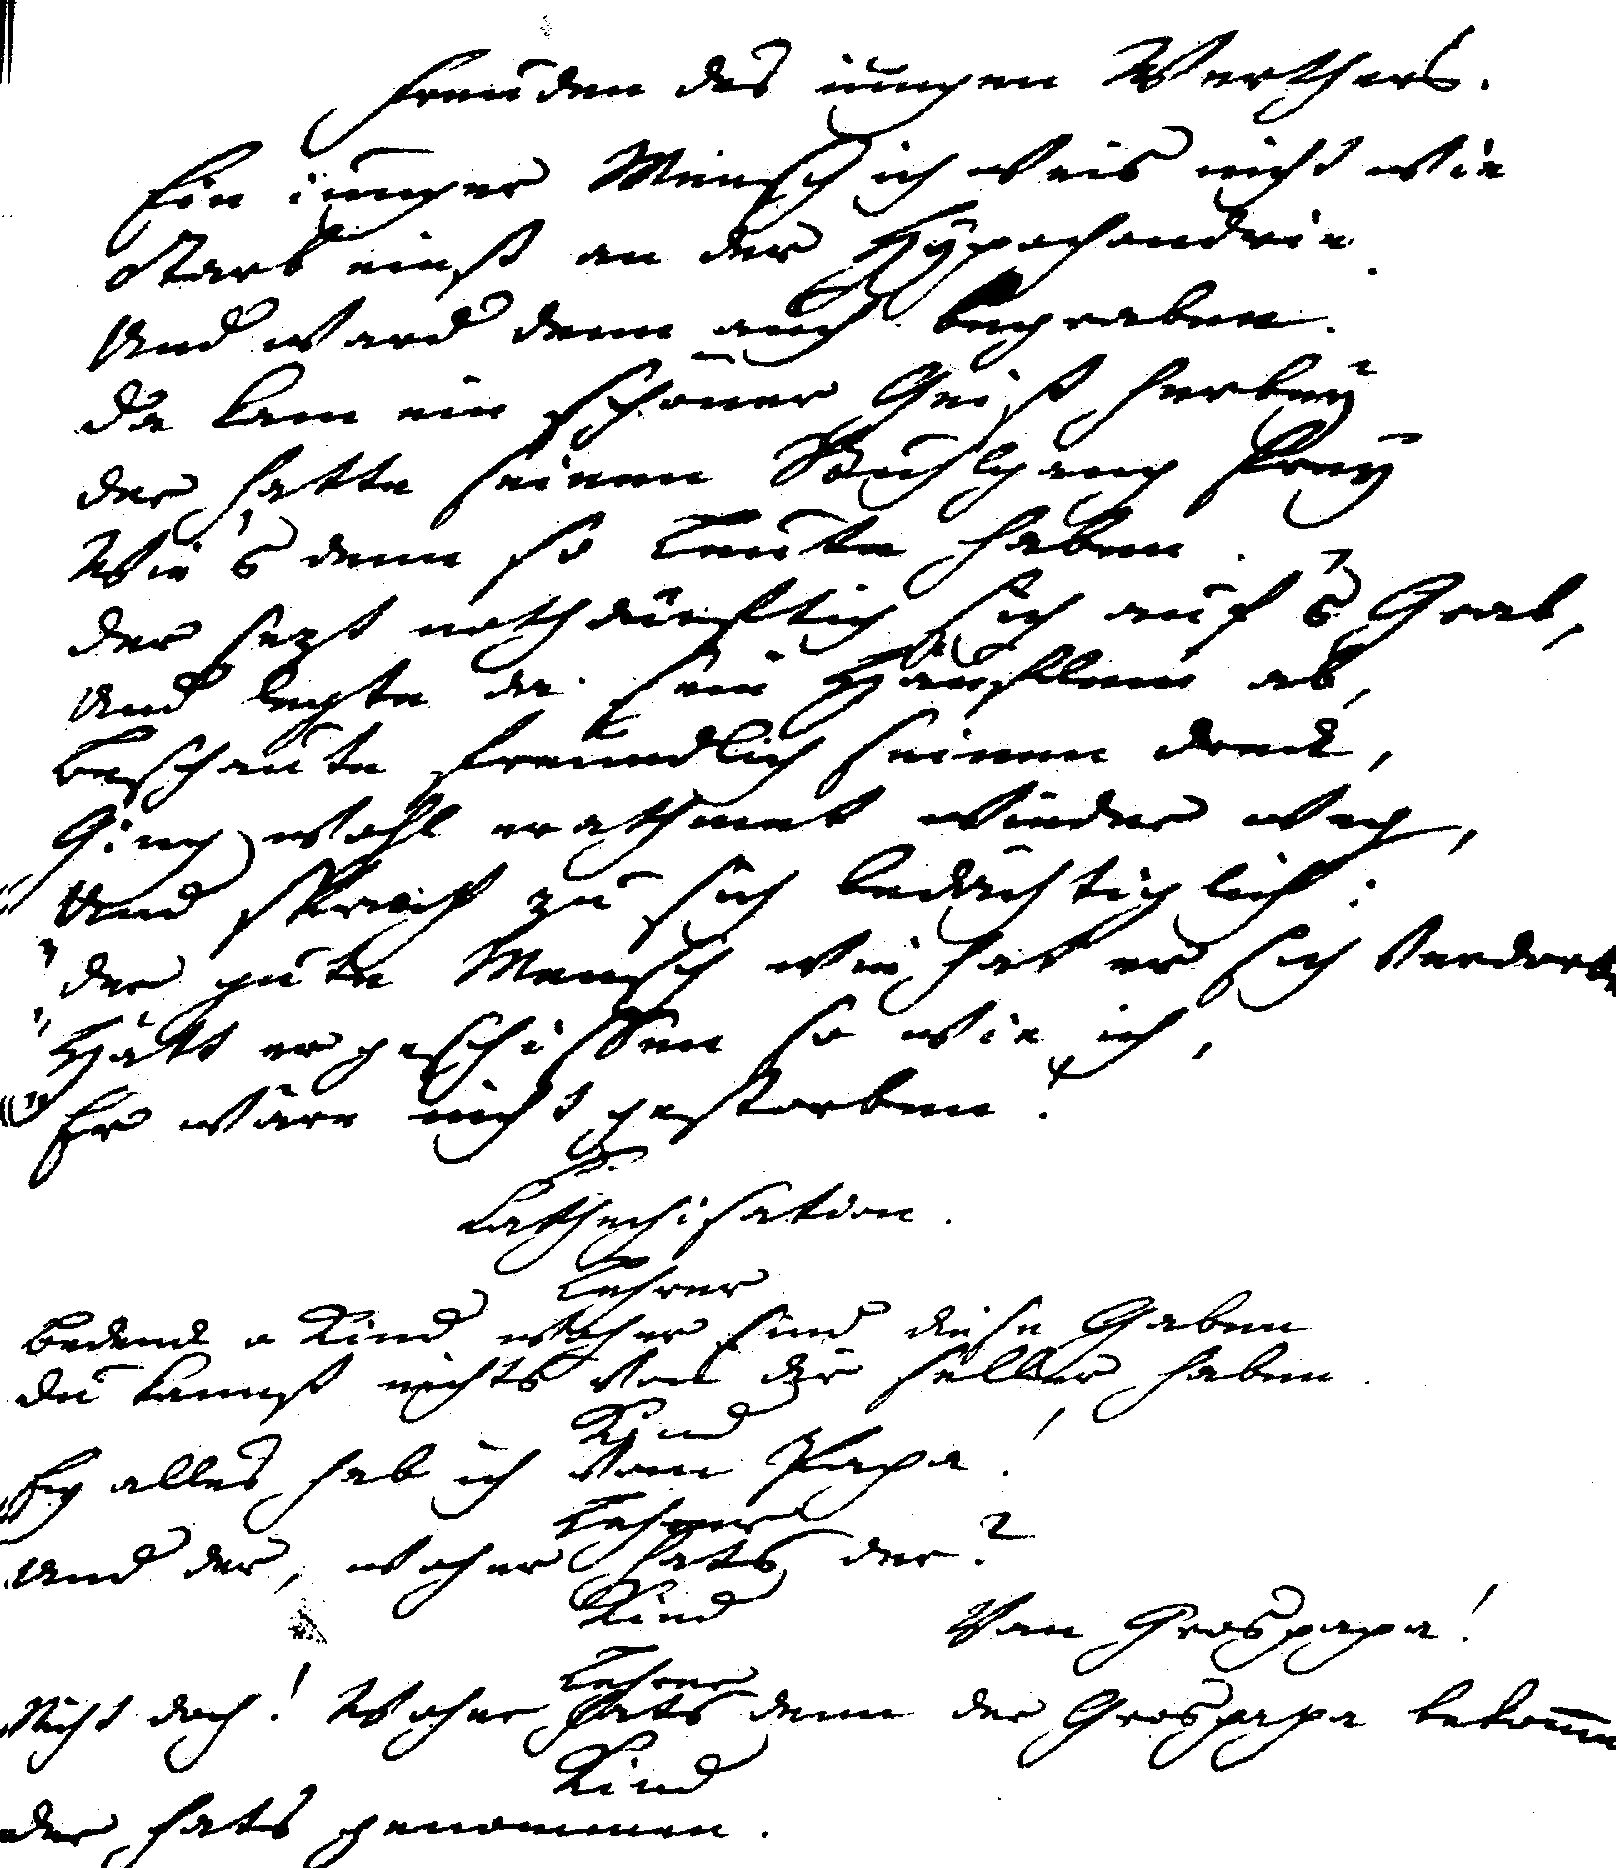 Freuden des iungen Werthers.
Ein iunger Mensch ich weis nicht wie
Starb einst an der Hypochondrie.
Und ward denn auch begraben.
Da kam ein schöner Geist herbey
der hatte seinen Stuhlgang frey
Wie's denn so Leute haben.
der sezt nothdürftig sich auf's Grab,
Und legte da sein Häuflein ab,
Beschaute freundlich seinen Dreck,
Ging wohl erathmet wieder weg,
Und sprach zu sich bedächtiglich:
"der gute Mensch wie hat er sich verdorben
"Hätt er geschissen so wie ich,
"Er wäre nicht gestorben!
Cathechisation.
Lehrer
Bedenck o Kind woher sind diese Gaben
du kannst nichts von dir selber haben.
Kind
Ey alles hab ich vom Papa!
Lehrer
Und der, woher hats der?
Kind
Vom Grospapa!
Lehrer
Nicht doch! Woher hats denn der Grospapa bekommen
Kind
der hats genommen.